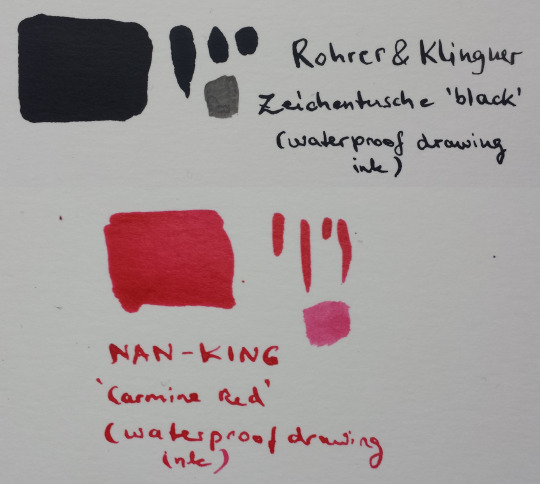 Rohrer & Klingner
Zeichentusche 'black'
(waterproof drawing
ink)
NAN-KING
'Carmine Red'
(waterproof drawing
ink)